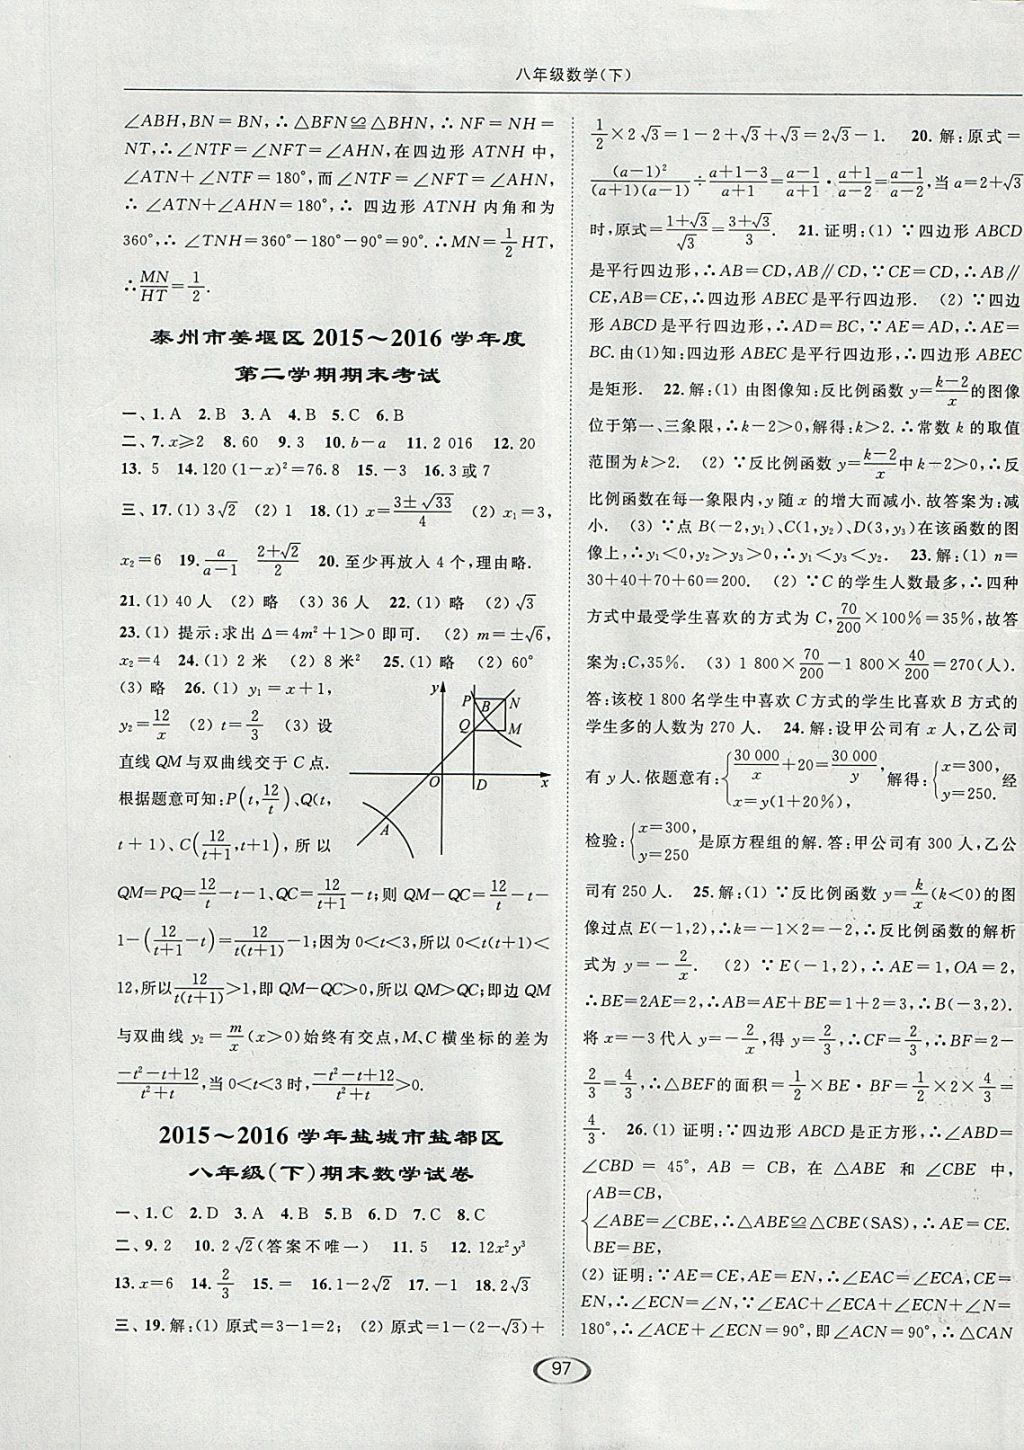 八年级数学(下)
∠ABH,BN=BN,∴△BFN≌△BHN,∴NF=NH=
NT,∴∠NTF=∠NFT=∠AHN,在四边形 ATNH 中,
∠ATN+∠NTF=180°,而∠NTF=∠NFT=∠AHN,
∴∠ATN+∠AHN=180°,∴ 四边形 ATNH 内角和为
360°,∴ ∠TNH=360°-180°-90°=90°.∴MN=1/2 HT,
∴MN/HT=1/2.
泰州市姜堰区 2015～2016 学年度
第二学期期末考试
一、1. A 2. B 3. A 4. B 5. C 6. B
二、7. x≥2 8. 60 9. 3 10. b-a 11. 2 016 12. 20
13. 5 14. 120 (1-x)²=76.8 15. -3 16. 3 或 7
三、17. (1) 3√2 (2) 1 18. (1) x=(3±√33)/4 (2) x₁=3,
x₂=6 19. a/(a-1) (2+√2)/2 20. 至少再放入 4 个,理由略.
21. (1) 40 人 (2) 略 (3) 36 人 22. (1) 略 (2) √3
23. (1) 提示:求出 Δ=4m²+1>0 即可. (2) m=±√6,
x₂=4 24. (1) 2 米 (2) 8 米² 25. (1) 略 (2) 60°
(3) 略 26. (1) y₁=x+1,
y₂=12/x (2) t=2/3 (3) 设
直线 QM 与双曲线交于 C 点.
根据题意可知:P(t,12/t)、Q(t,
t+1)、C(12/(t+1),t+1),所以
y P B N Q M O D x A
QM=PQ=12/t-t-1、QC=12/(t+1)-t;则 QM-QC=12/t-t-
1-(12/(t+1)-t)=12/(t(t+1))-1;因为 0<t<3,所以 0<t(t+1)<
12,所以12/(t(t+1))>1,即 QM-QC>0,所以 QM>QC;即边 QM
与双曲线 y₂=m/x(x>0)始终有交点,M、C 横坐标的差为
(-t²-t+12)/(t²+t),当 0<t<3 时,(-t²-t+12)/(t²+t)>0.
2015～2016 学年盐城市盐都区
八年级(下)期末数学试卷
一、1. C 2. D 3. A 4. B 5. B 6. D 7. C 8. C
二、9. 2 10. 2√2(答案不唯一) 11. 5 12. 12x²y³
13. x=6 14. 2/3 15. = 16. 1-2√2 17. -1 18. 2√3
三、19. 解:(1) 原式=3-1=2; (2) 原式=1-(2-√3)+
1/2×2√3=1-2+√3+√3=2√3-1. 20. 解:原式=
(a-1)²/((a+1)(a-1))÷(a+1-3)/(a+1)=(a-1)/(a+1)·(a+1)/(a-2)=(a-1)/(a-2),当 a=2+√3
时,原式=(1+√3)/√3=(3+√3)/3. 21. 证明:(1) ∵四边形 ABCD
是平行四边形,∴AB=CD,AB∥CD,∵CE=CD,∴AB∥
CE,AB=CE,∴四边形 ABEC 是平行四边形. (2) ∵四边
形 ABCD 是平行四边形,∴AD=BC,∵AE=AD,∴AE=
BC.由(1)知:四边形 ABEC 是平行四边形,∴四边形 ABEC
是矩形. 22. 解:(1) 由图像知:反比例函数 y=(k-2)/x的图像
位于第一、三象限,∴k-2>0,解得:k>2.∴常数 k 的取值
范围为 k>2. (2) ∵反比例函数 y=(k-2)/x中 k-2>0,∴反
比例函数在每一象限内,y 随 x 的增大而减小.故答案为:减
小. (3) ∵点 B(-2,y₁)、C(1,y₂)、D(3,y₃)在该函数的图
像上,∴y₁<0,y₂>y₃>0,∴y₁<y₃<y₂. 23. 解:(1) n=
30+40+70+60=200. (2) ∵C 的学生人数最多,∴四种
方式中最受学生喜欢的方式为 C,70/200×100%=35%,故答
案为:C,35%. (3) 1 800×70/200-1 800×40/200=270(人).
答:该校 1 800 名学生中喜欢 C 方式的学生比喜欢 B 方式的
学生多的人数为 270 人. 24. 解:设甲公司有 x 人,乙公司
有 y 人.依题意有:{30 000/x+20=30 000/y, x=y(1+20%), 解得:{x=300, y=250. 经
检验:{x=300, y=250 是原方程组的解.答:甲公司有 300 人,乙公
司有 250 人. 25. 解:(1) ∵反比例函数 y=k/x(k<0)的图
像过点 E(-1,2),∴k=-1×2=-2,∴反比例函数的解析
式为 y=-2/x. (2) ∵E(-1,2),∴AE=1,OA=2,
∴BE=2AE=2,∴AB=AE+BE=1+2=3,∴B(-3,2).
将 x=-3 代人 y=-2/x,得 y=2/3,∴CF=2/3,∴BF=2-
2/3=4/3,∴△BEF的面积=1/2×BE·BF=1/2×2×4/3=
4/3. 26. (1) 证明:∵四边形 ABCD 是正方形,∴∠ABD=
∠CBD = 45°, AB = CB, 在 △ABE 和 ∠CBE 中,
{AB=CB,
∠ABE=∠CBE,∴△ABE≌△CBE(SAS),∴AE=CE.
BE=BE,
(2) 证明:∵AE=CE,AE=EN,∴∠EAC=∠ECA,CE=
EN,∴∠ECN=∠N,∵∠EAC+∠ECA+∠ECN+∠N=
180°,∴∠ACE+∠ECN=90°,即∠ACN=90°,∴△CAN
97